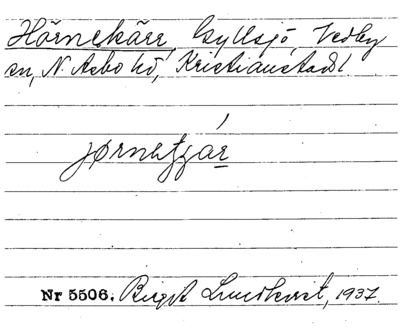 Hörnekärr, Gyllsjö, Vedby
sn, N. Åsbo hd, Kristianstads l
Nr 5506. Birgit Lundkvist, 1937.